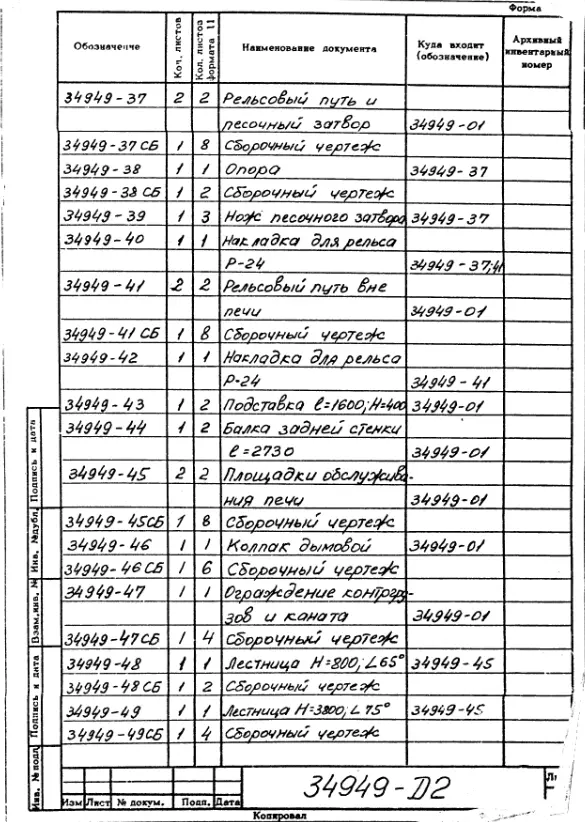 Форма
Обозначение Кол. листов Кол. листов формата 11 Наименование документа Куда входит (обозначение) Архивный инвентарный номер
34949-37 2 2 Рельсовый путь и
песочный затвор 34949-01
34949-37 СБ 1 8 Сборочный чертеж
34949-38 1 1 Опора 34949-37
34949-38 СБ 1 2 Сборочный чертеж
34949-39 1 3 Нож песочного затвора 34949-37
34949-40 1 1 Накладка для рельса
Р-24 34949-37;41
34949-41 2 2 Рельсовый путь вне
печи 34949-01
34949-41 СБ 1 8 Сборочный чертеж
34949-42 1 1 Накладка для рельса
Р-24 34949-41
34949-43 1 2 Подставка ℓ=1600; Н=400 34949-01
34949-44 1 2 Балка задней стенки
ℓ=2730 34949-01
34949-45 2 2 Площадки обслужива-
ния печи 34949-01
34949-45СБ 1 8 Сборочный чертеж
34949-46 1 1 Колпак дымовой 34949-01
34949-46 СБ 1 6 Сборочный чертеж
34949-47 1 1 Ограждение контргру-
зов и каната 34949-01
34949-47СБ 1 4 Сборочный чертеж
34949-48 1 1 Лестница Н=800; ∠65° 34949-45
34949-48 СБ 1 2 Сборочный чертеж
34949-49 1 1 Лестница Н=3800; ∠75° 34949-45
34949-49СБ 1 4 Сборочный чертеж
Инв. № подл. Подпись и дата Взам. инв. № Инв. № дубл. Подпись и дата
34949-D2
Изм Лист № докум. Подп. Дата
Копировал